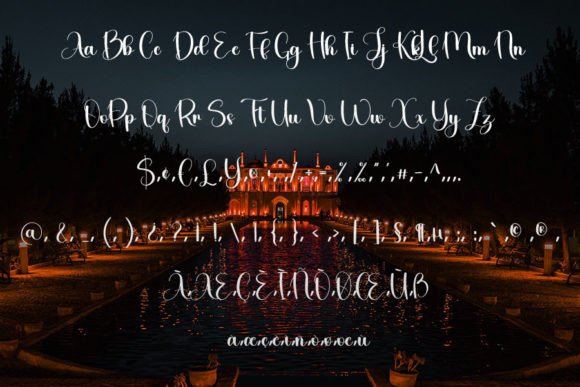 Aa Bb Cc Dd Ee Ff Gg Hh Ii Jj Kk Ll Mm Nn
Oo Pp Qq Rr Ss Tt Uu Vv Ww Xx Yy Zz
$,¢,€,£,¥,¤,+,/,÷,=,%,‰,",',#,-,^,,,.
@,&,_,(,),¿,?,!,¡,\,|,{,},<,>,[,],§,¶,µ,:,;,`,©,®,
À,Æ,Ç,È,Ì,Ñ,Ò,Ø,Œ,Ù,ß